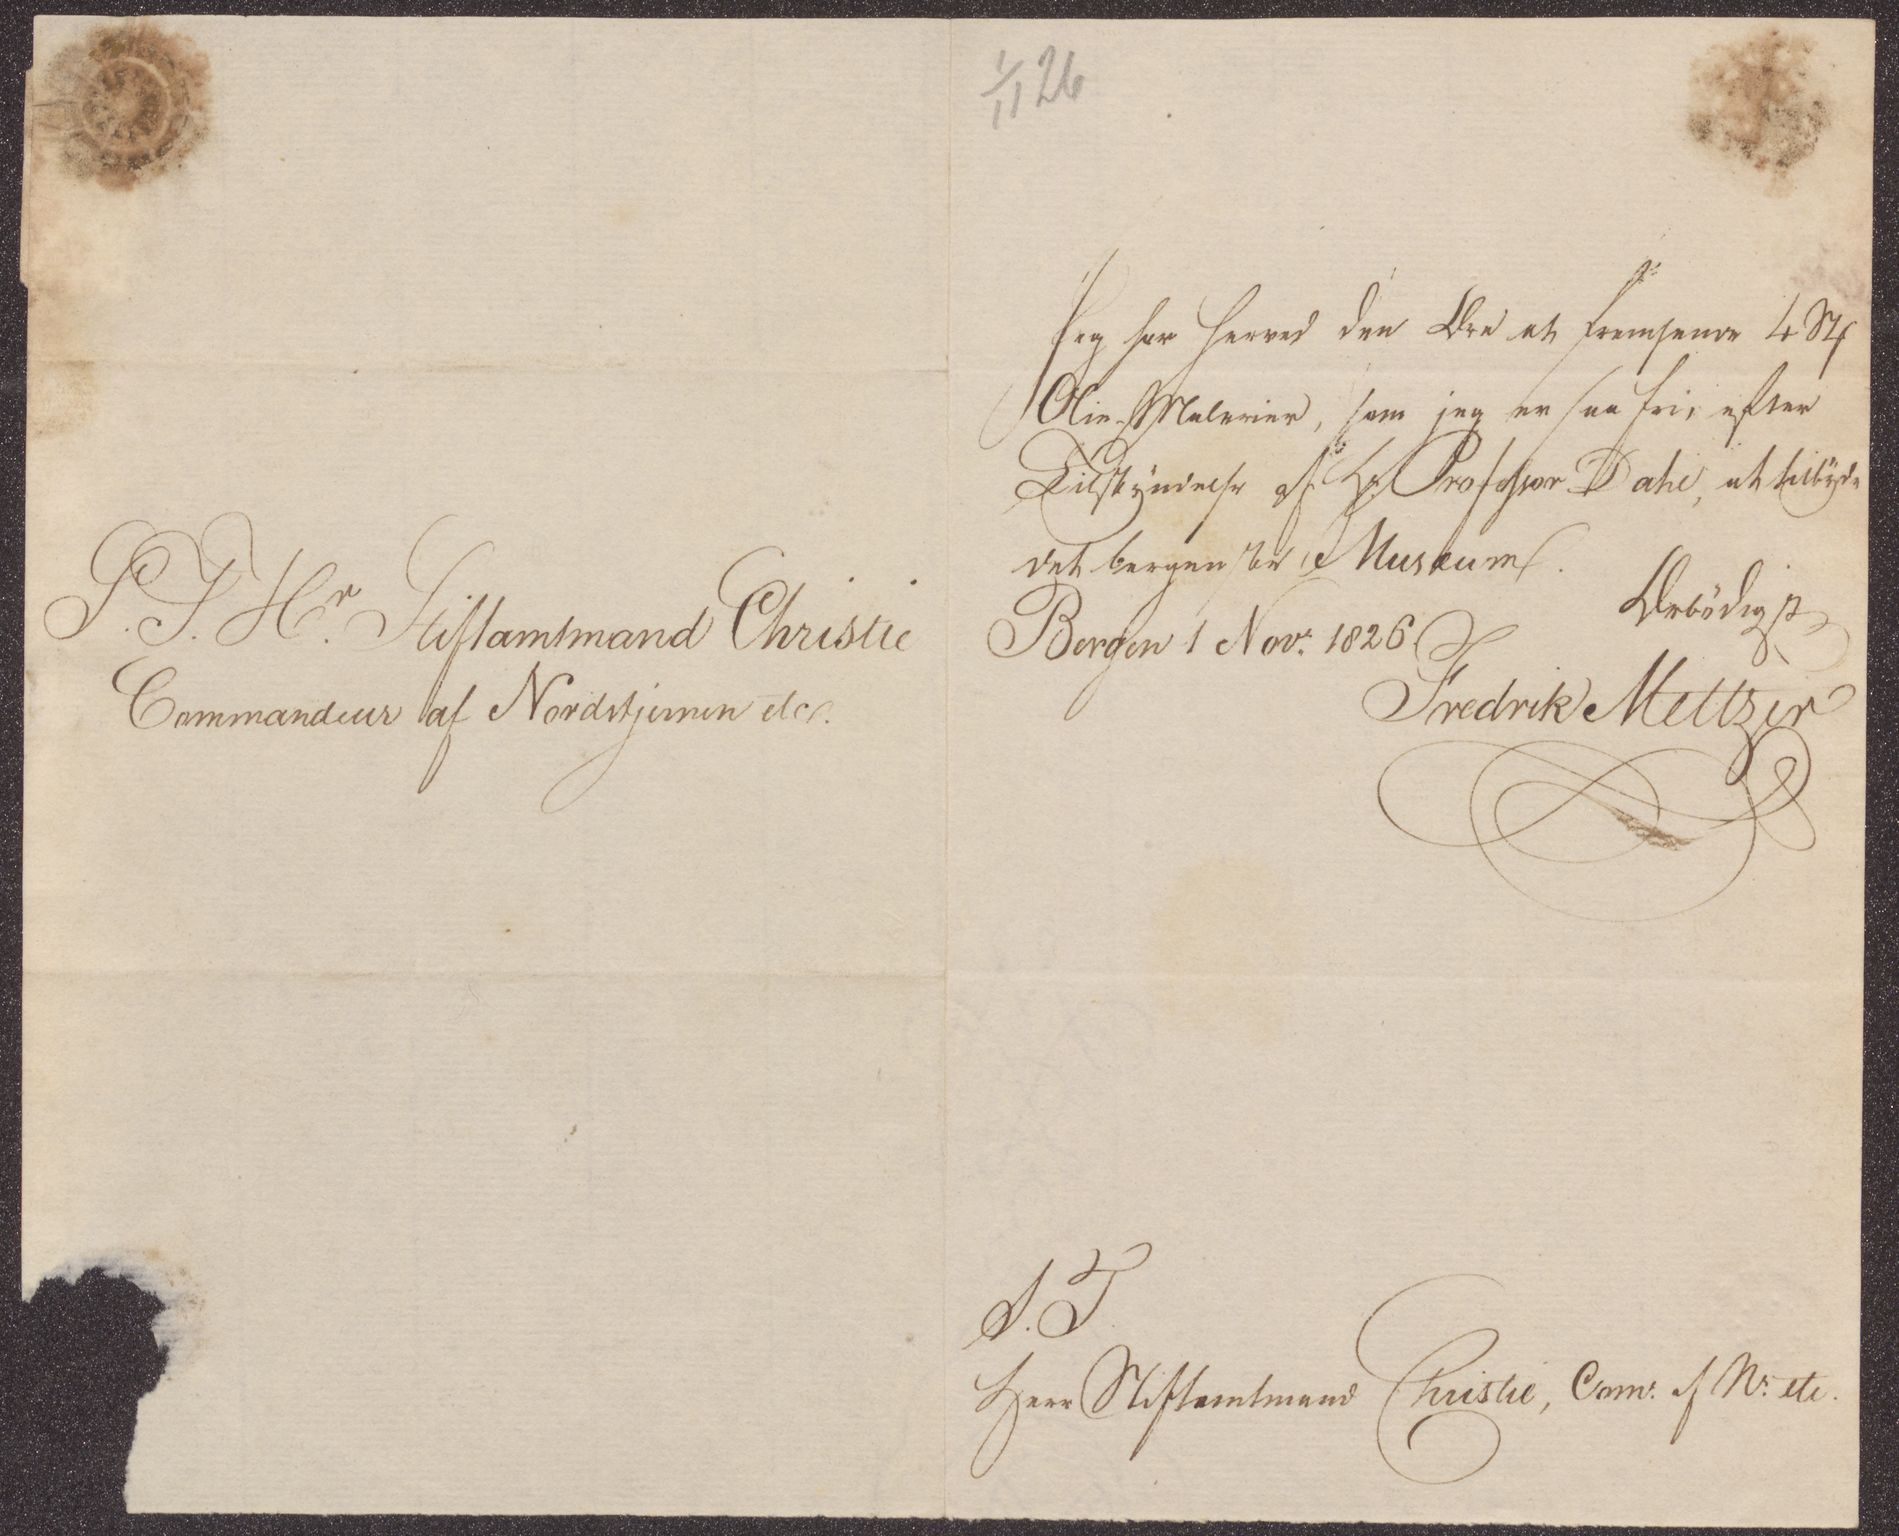 S. T. Hr. Stiftamtmand Christie
Commandeur af Nordstjernen etc.
1/11 26
Jeg har herved den Ære at fremsende 4 St
Olie-Malerier, som jeg er saa fri, efter
Tilskyndelse af Hr Professor Dahl, at tilbyde
det bergenske Museum.
Ærbödigst
Bergen 1 Novr. 1826
Fredrik Meltzer
S. T.
Herr Stiftamtmand Christie, Comr. af Nr. etc.